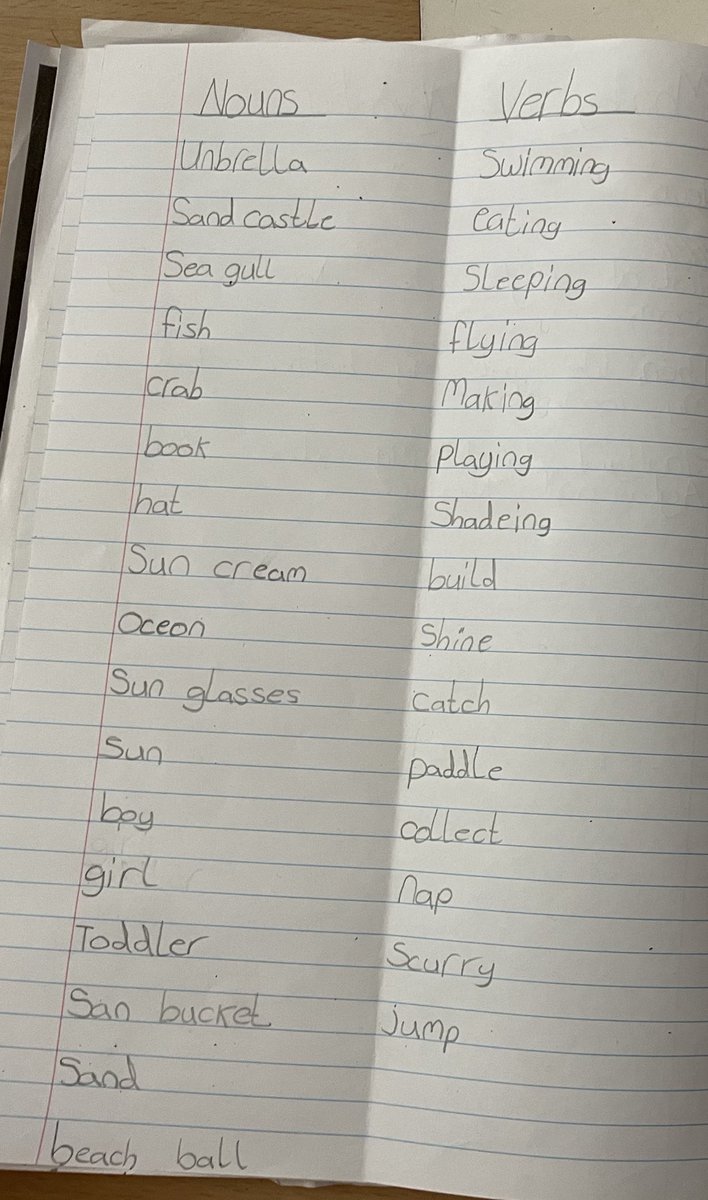 Nouns
Unbrella
Sand castle
Sea gull
fish
crab
book
hat
Sun cream
Oceon
Sun glasses
Sun
boy
girl
Toddler
San bucket
Sand
beach ball
Verbs
Swimming
eating
Sleeping
flying
Making
Playing
Shadeing
build
Shine
catch
paddle
collect
nap
Scurry
jump